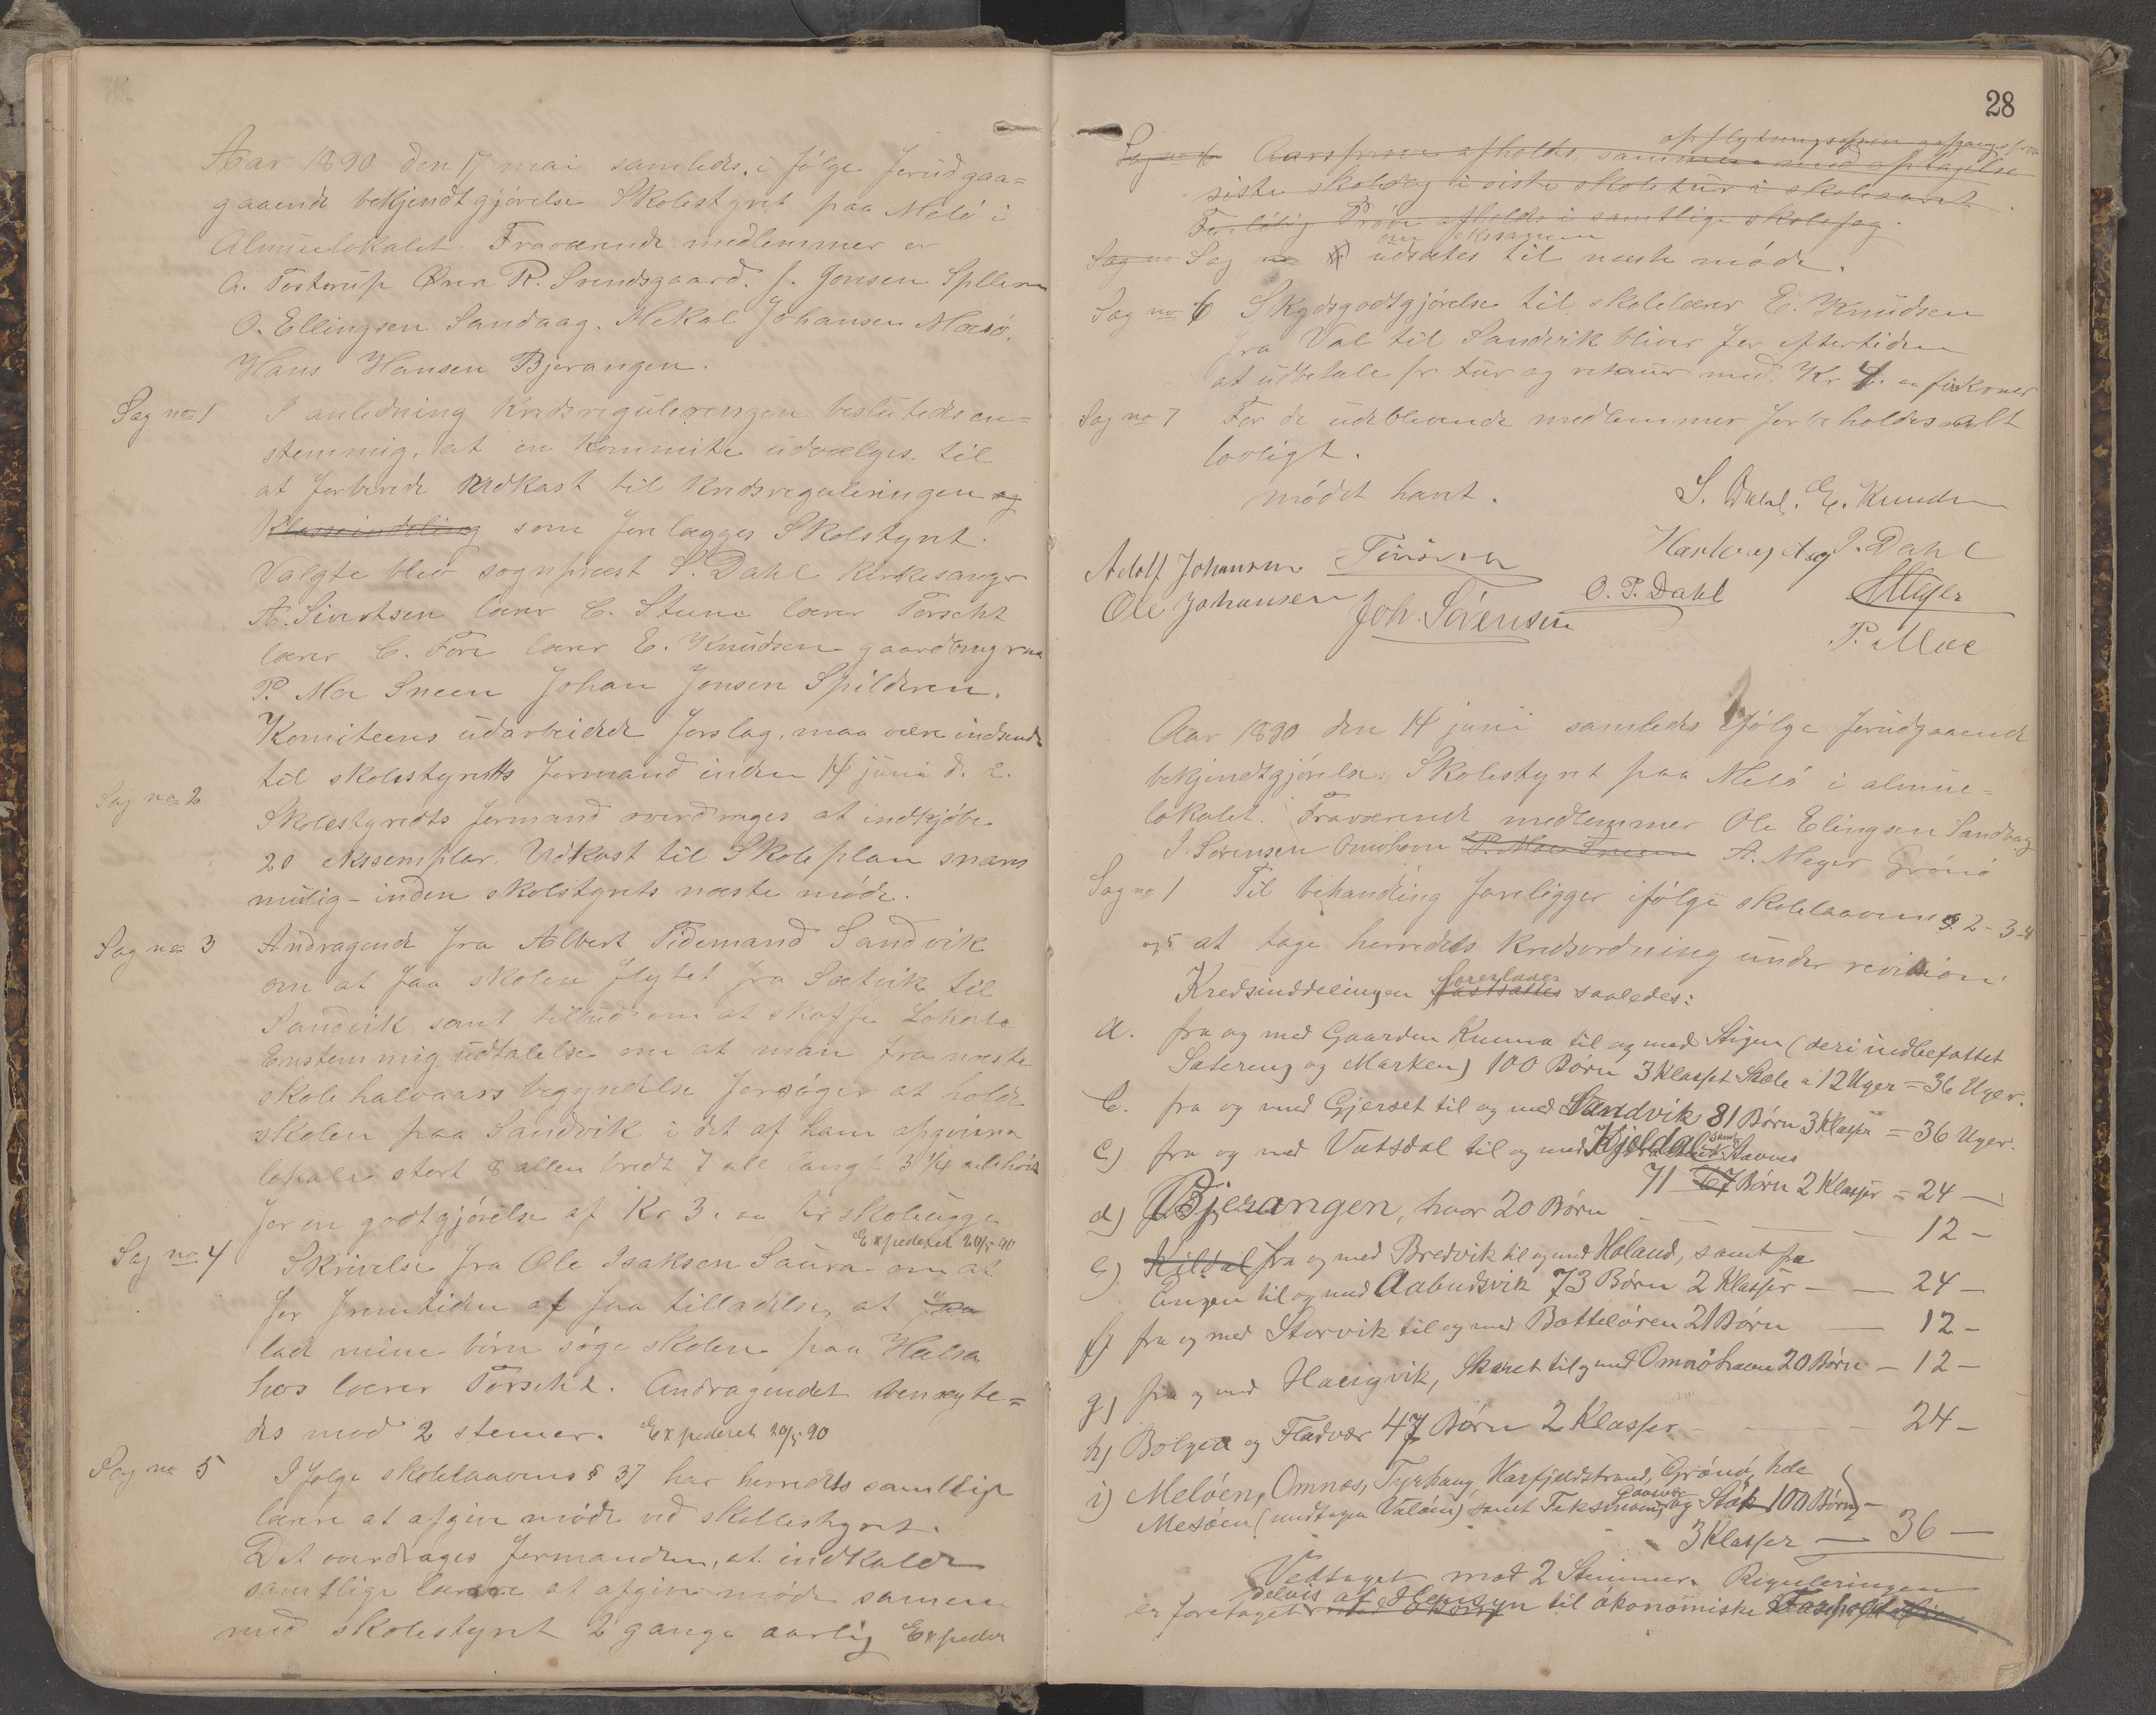 Aar 1890 den 17 mai samledes i følge forudgaa=
gaaende bekjendtgjørelse Skolestyret paa Melø i
Almuelokalet. Fraværende medlemmer er
A. Tostrup Ørnes R. Svendsgaard. J. Jonsen
O. Ellingsen Sandaag. Mekal Johansen Mesø.
Hans Hansen Bjerangen.
Sag no 1 I anledning Kredsreguleringen besluttedes en=
stemmig, at en Kommite udvælges til
at forberede Udkast til Kredsreguleringen og
Klasseindeling som forelægges Skolstyret.
Valgte blev sognpræst S. Dahl Kirkesanger
A. Sivertsen lærer C. Stene lærer Torseht
lærer C. Fore lærer E. Knudsen gaardbruger
P. Moe Sneen Johan Jonsen Spilderen.
Komiteens udarbeidede forslag, maa være indsendt
til skolestyretts formand inden 14 juni d. a.
Sag no 2
Skolestyredts formand overdrages at indkjøbe
20 eksemplar. Udkast til Skoleplan snars
mulig - inden skolstyrets næste møde.
Sag no 3 Andragende fra Albert Tidemand Sandvik
om at faa skolen flytet fra Sætvik til
Sandvik samt tilbud om at skaffe Lokale
Enstemmig udtalelse om at man fra næste
skole halvaars begyndelse forsøger at holde
skolen paa Sandvik i det af ham opgivne
lokale stort 8 allen bredt 7 all langt 3 1/4 alehøit
for en godtgjørelse af Kr 3. pr skoleugge
Expederet 20/5 90
Sag no 4 Skrivelse fra Ole Isaksen Saura om at
for fremtiden af faa tilladelse, at faa
lade mine børn søge skolen paa Halsa
hos lærer Torseht. Andragendet benegte=
des mod 2 stemer. Expederet 20/5 90
Sag no 5 I følge skolelaavens § 37 har herredets samtlige
lærere at afgive møde ved skollestyret.
Det overdrages formanden, at indkalde
samtlige lærere at afgive møde samen
med skolestyret 2 gange aarlig Expeder
28
Sag no 6 Aarsprøve afholdes, sammen med optagelse
siste skoledag i siste skoletur i skoleaaret.
Prøve afholdes i samtlige skolefag.
om eksamen
Sag no Sag no udsættes til næste møde.
Sag no 6 Skydsgodtgjørelse til skolelærer E. Knudsen
fra Val til Sandvik bliver for eftertiden
at udbetale pr tur og retaur med Kr 4. firkroner
Sag no 7 For de udeblivende medlemmer forbeholdes alt
lovligt.
mødet hævet.
S. Dahl. E. Knudsen
Hartvig J. Dahl
Adolf Johansen
O. P. Dahl AMeyer
Ole Johansen Joh. Sørensen
P. Moe
Aar 1890 den 14 juni samledes ifølge forudgaaende
bekjendtgjørelse, Skolestyret paa Melø i almue=
lokalet. Fraværende medlemmer Ole Elingsen Sandaag
J. Sørensen Omnøhavn P. Moe Sneen A. Meyer Grønø
Sag no 1 Til behandling foreligger ifølge skolelaavens § 2-3-4
og 5 at tage herredets kredsordning under revision.
Kredsinddelingen fastsattes foreslaaes saaledes:
a. fra og med Gaarden Kunna til og med Stigen (deri indbefattet
Sætereng og Marken) 100 Børn 3 klasset Skole a 12 Uger = 36 Uger.
b. fra og med Gjerset til og med Sandvik 81 Børn 3 klasser = 36 Uger.
c) fra og med Vatsdal til og med Kjeldal samt Stavnes
71 67 Børn 2 Klasser = 24 —
d) Bjerangen, hvor 20 Børn — — — 12 —
e) Kildal fra og med Bredvik til og med Haland, samt fra
Engen til og med Aabudsvik 73 Børn 2 Klasser — — 24 —
f) fra og med Storvik til og med Batteløren 21 Børn — 12 —
g) fra og med Haugvik, Skaret til og med Omnøhavn 20 Børn — 12 —
h) Bolgen og Fladvær 47 Børn 2 Klasser — — 24 —
i) Meløen, Omnæs, Tyrhaug, Karfjeldstrand, Grønø, hele
Mesøen (undtagen Valøen) samt Teksmona, Gaasvær og Støt 100 Børn —
3 Klasser — 36 —
Vedtaget mod 2 Stemmer. Reguleringen
er foretaget delvis af Hensyn til økonomiske Forhold